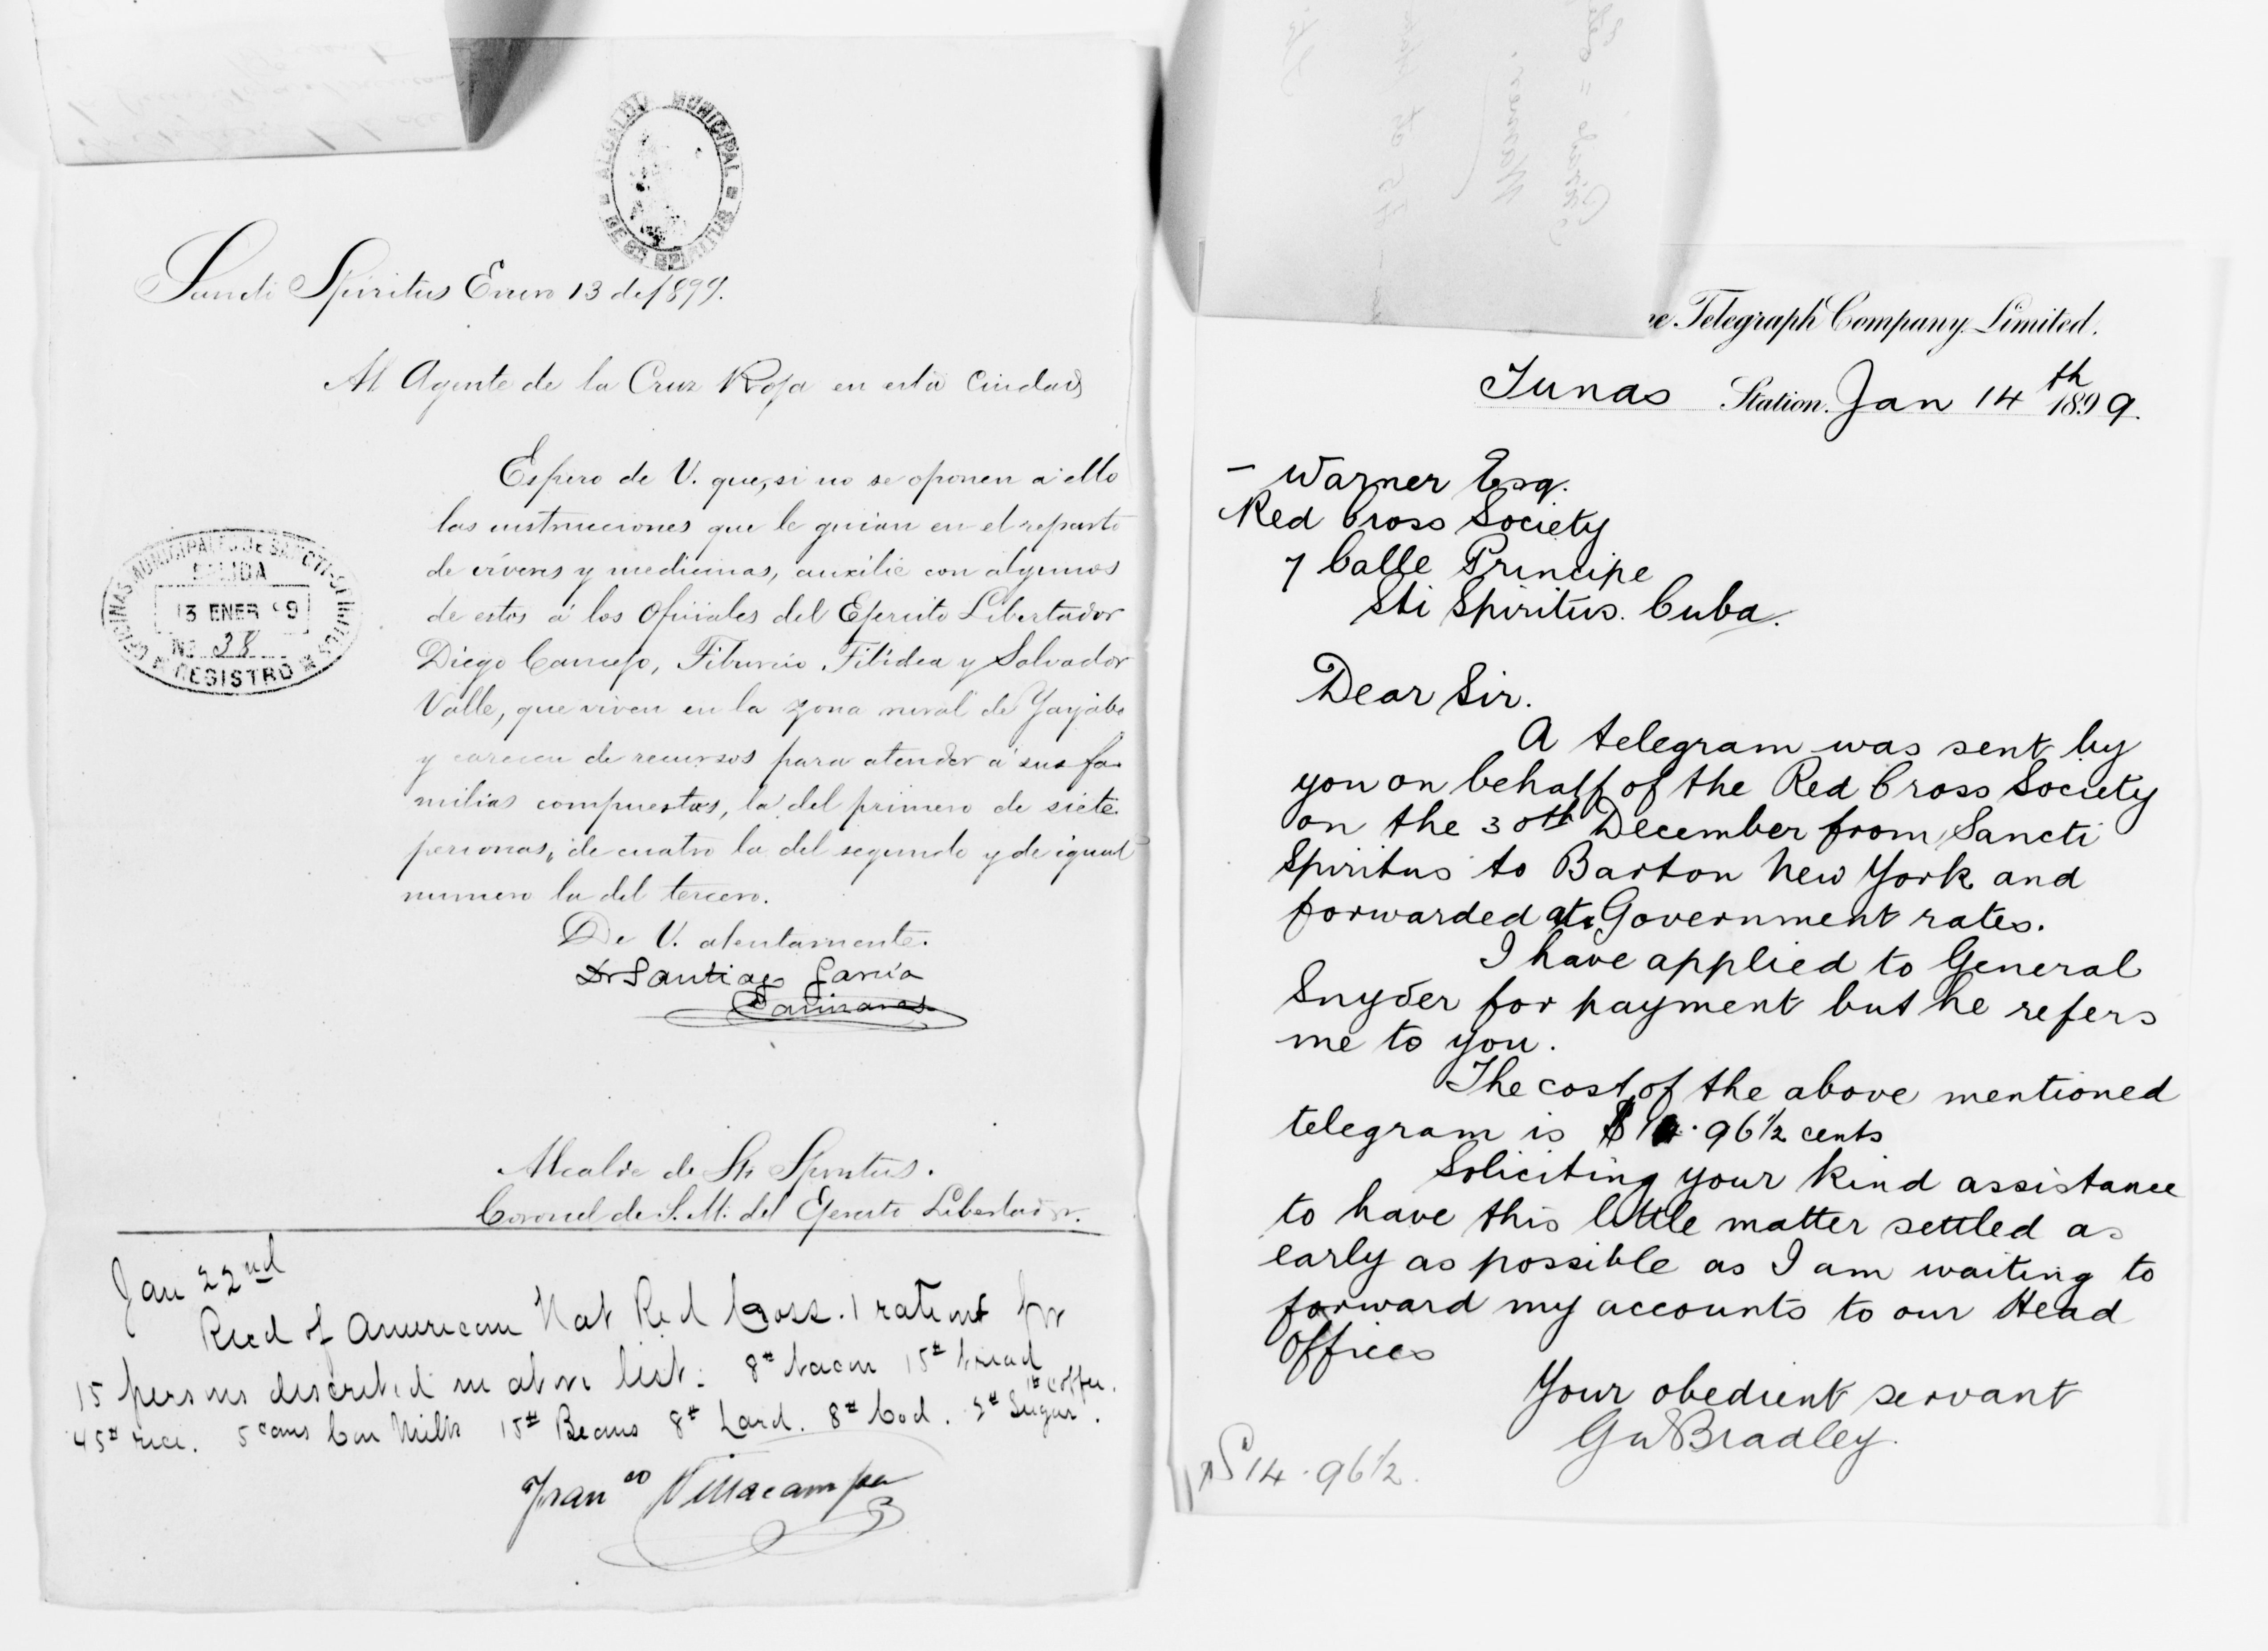 ALCALDIA MUNICIPAL
DE S. SPIRITUS
Sancti Spiritus Enero 13 de 1899.
Al Agente de la Cruz Roja en esta Ciudad
Espero de V. que, si no se oponen a ello
las instrucciones que le guian en el reparto
de viveres y medicinas, auxilie con algunos
de estos á los Oficiales del Ejercito Libertador
Diego Cancejo, Tiburcio Filidea y Salvador
Valle, que viven en la zona rural de Yayabo
y carecen de recursos para atender á sus fa-
milias compuestas, la del primero de siete
personas, de cuatro la del segundo y de igual
numero la del tercero.
De V. atentamente.
Dr Santiago Garcia
Cañizares
OFICINAS MUNICIPALES DE SANCTI-SPIRITUS
SALIDA
13 ENER 99
No. 38
REGISTRO
Alcalde de Sti Spiritus.
Coronel de S. M. del Ejercito Libertador.
Jan 22nd
Recd of American Nat Red Cross. 1 rations for
15 persons described in above list: 8# bacon 15# bread
1# coffee.
45# rice. 5 cans Con Milk 15# Beans 8# Lard. 8# Cod. 2# Sugar.
Franco Villacampa
Telegraph Company. Limited.
Tunas Station. Jan 14th 1899.
- Warner Esq.
Red Cross Society
7 Calle Principe
Sti Spiritus. Cuba.
Dear Sir.
A telegram was sent by
you on behalf of the Red Cross Society
on the 30th December from Sancti
Spiritus to Barton New York and
forwarded at Government rates.
I have applied to General
Snyder for payment but he refers
me to you.
The cost of the above mentioned
telegram is $14.96½ cents
Soliciting your kind assistance
to have this little matter settled as
early as possible as I am waiting to
forward my accounts to our Head
Offices
Your obedient servant
G W Bradley.
$14.96½.